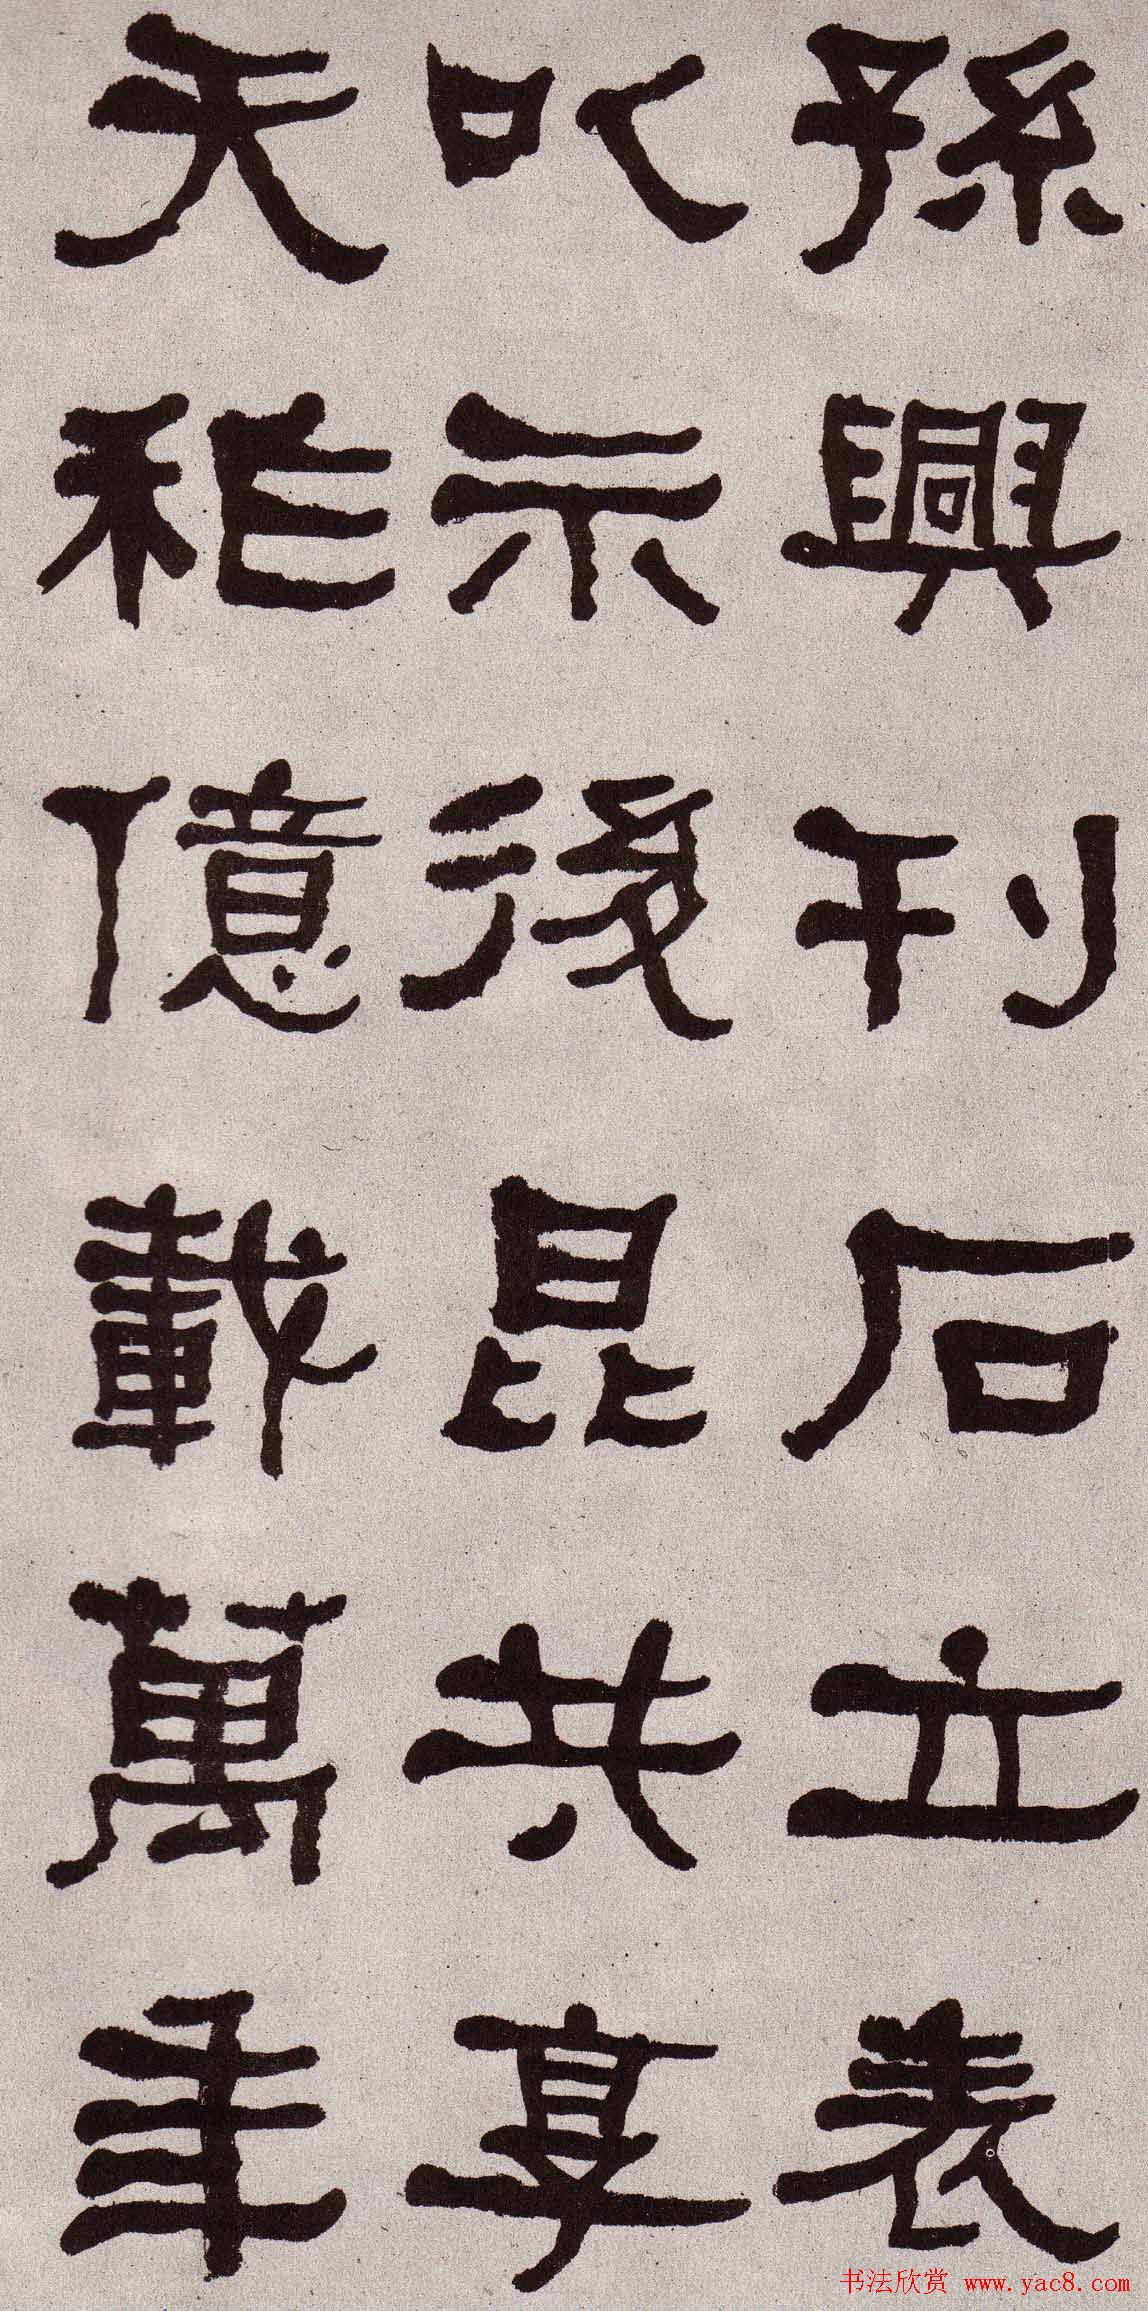 孫興刊石立表
以示後昆共享
天秨億載萬年
书法欣赏 www.yac8.com